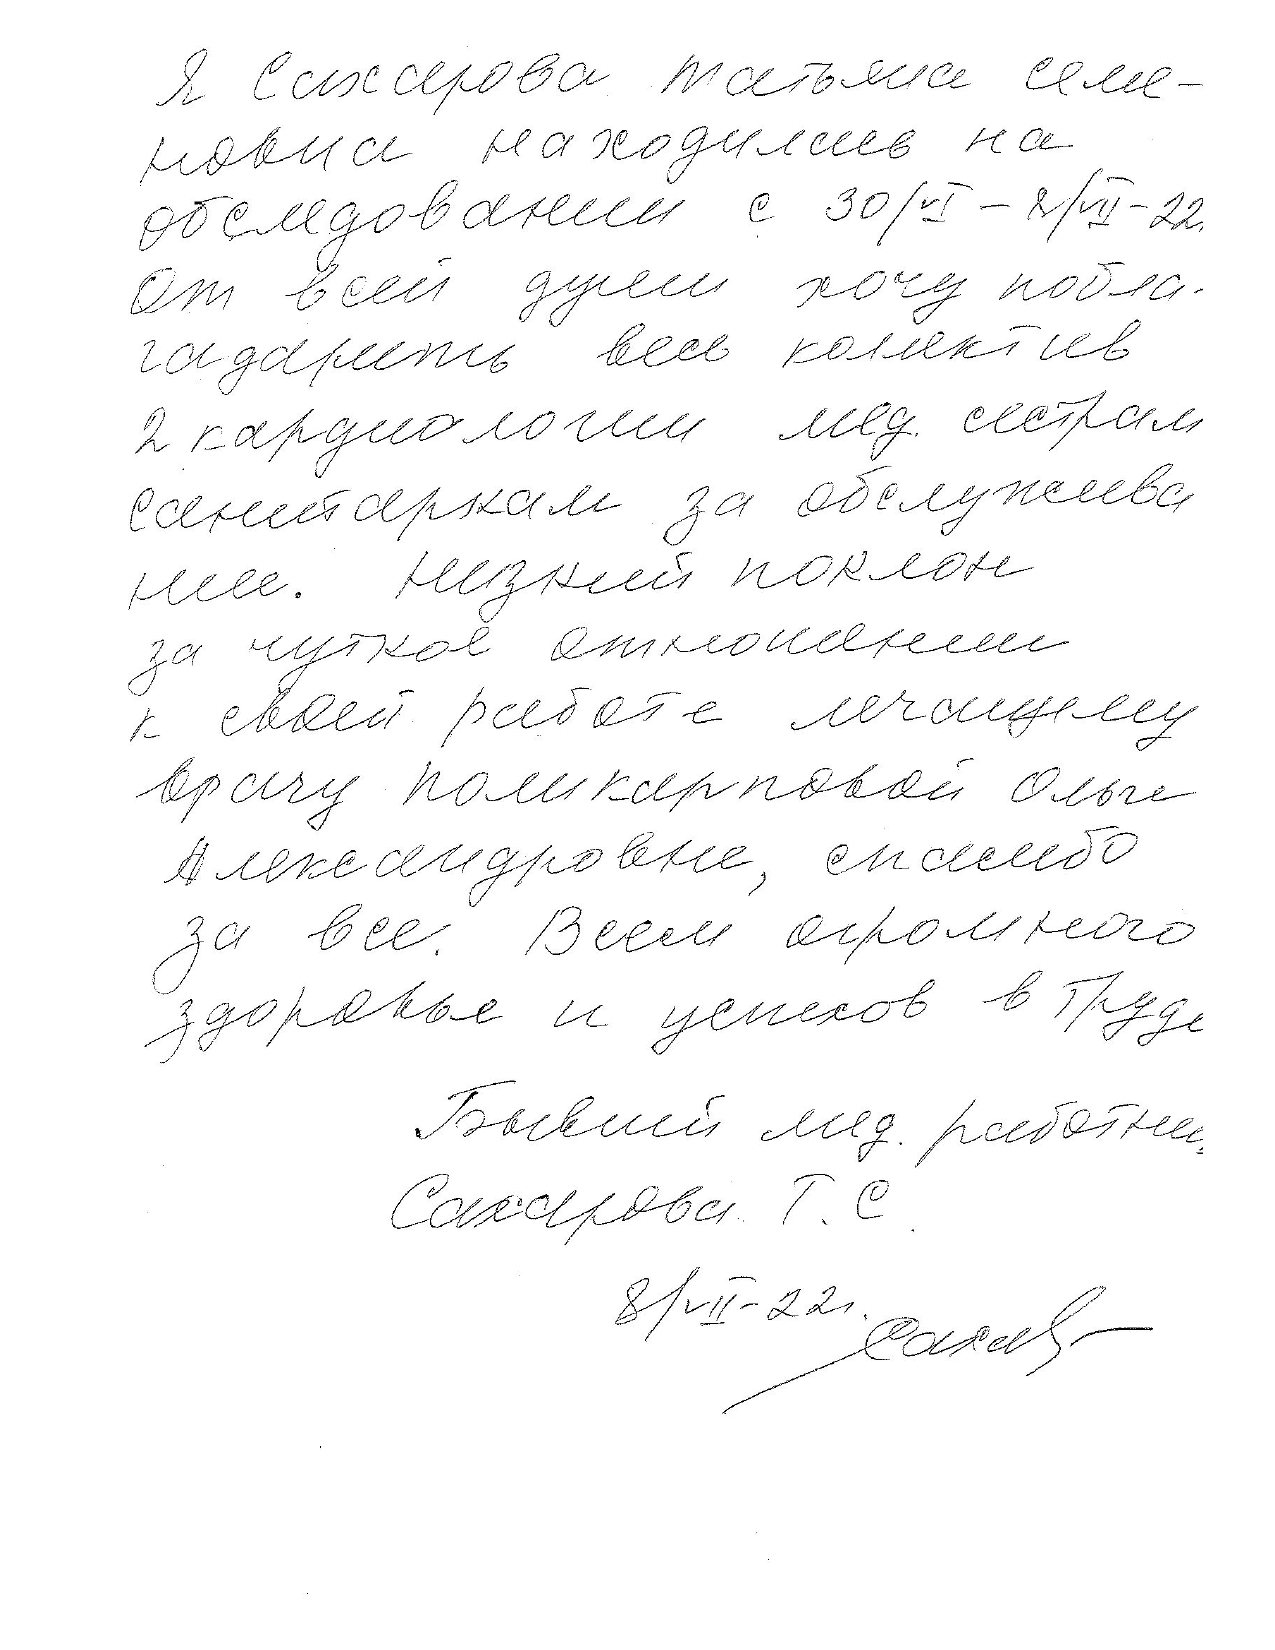 Я Сахарова Татьяна Семе-
новна находилась на
обследовании с 30/VI – 8/VII-22.
От всей души хочу побла-
гадарить весь колектив
2 кардиологии мед. сестрам
санитаркам за обслужива
ние. Низкий поклон
за чуткое отношении
к своей работе лечащему
врачу Поликарповой Ольге
Александровне, спасибо
за все. Всем огромного
здоровье и успехов в труде
Бывший мед. работник
Сахарова Т. С
8/VII-22г.